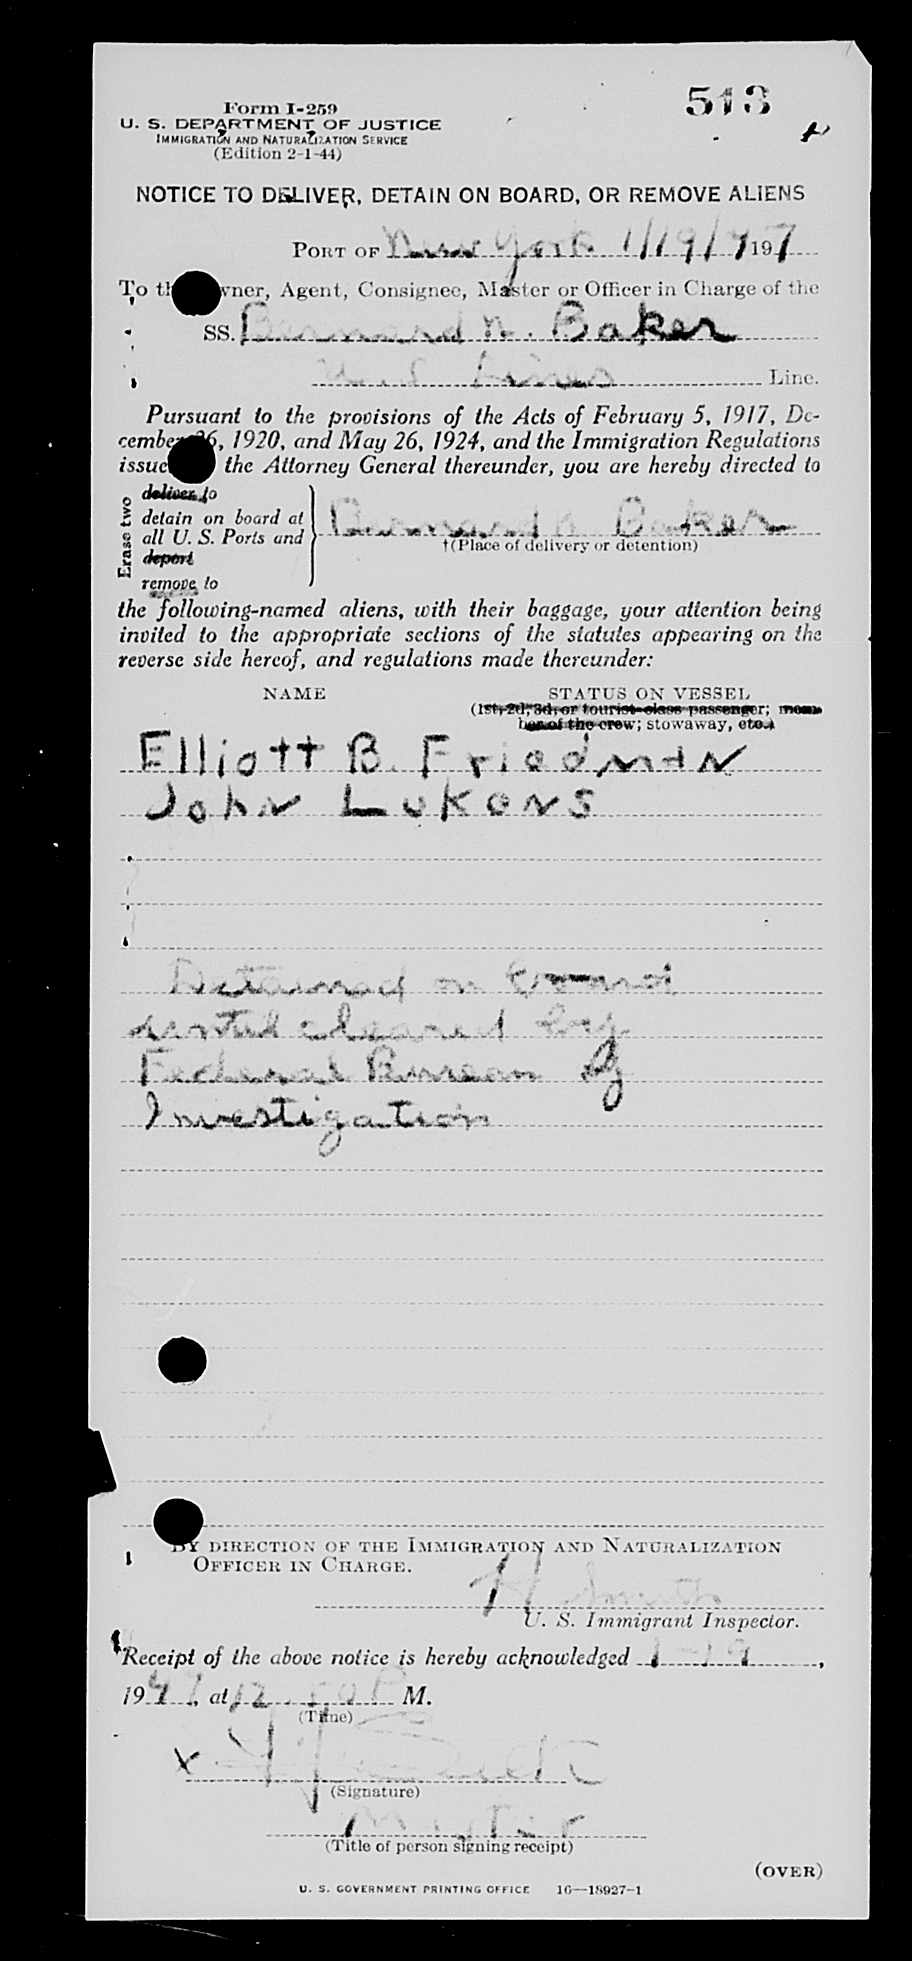 513
Form I-259
U. S. DEPARTMENT OF JUSTICE
IMMIGRATION AND NATURALIZATION SERVICE
(Edition 2-1-44)
NOTICE TO DELIVER, DETAIN ON BOARD, OR REMOVE ALIENS
PORT OF New York 1/19/47 197
To the Owner, Agent, Consignee, Master or Officer in Charge of the
SS. Bernard N. Baker
U.S. Lines Line.
Pursuant to the provisions of the Acts of February 5, 1917, De-
cember 26, 1920, and May 26, 1924, and the Immigration Regulations
issued the Attorney General thereunder, you are hereby directed to
Erase two
deliver to
detain on board at
all U. S. Ports and
deport
remove to
Bernard N. Baker
†(Place of delivery or detention)
the following-named aliens, with their baggage, your attention being
invited to the appropriate sections of the statutes appearing on the
reverse side hereof, and regulations made thereunder:
NAME STATUS ON VESSEL
(1st, 2d, 3d, or tourist class passenger; mem-
ber of the crew; stowaway, etc.)
Elliott B. Friedman
John Lukens
Detained on board
until cleared by
Federal Bureau of
Investigation
BY DIRECTION OF THE IMMIGRATION AND NATURALIZATION
OFFICER IN CHARGE.
H Smith
U. S. Immigrant Inspector.
Receipt of the above notice is hereby acknowledged 1-19,
1947, at 12.50 P M.
(Time)
x
(Signature)
Master
(Title of person signing receipt)
(OVER)
U. S. GOVERNMENT PRINTING OFFICE 16—18927-1